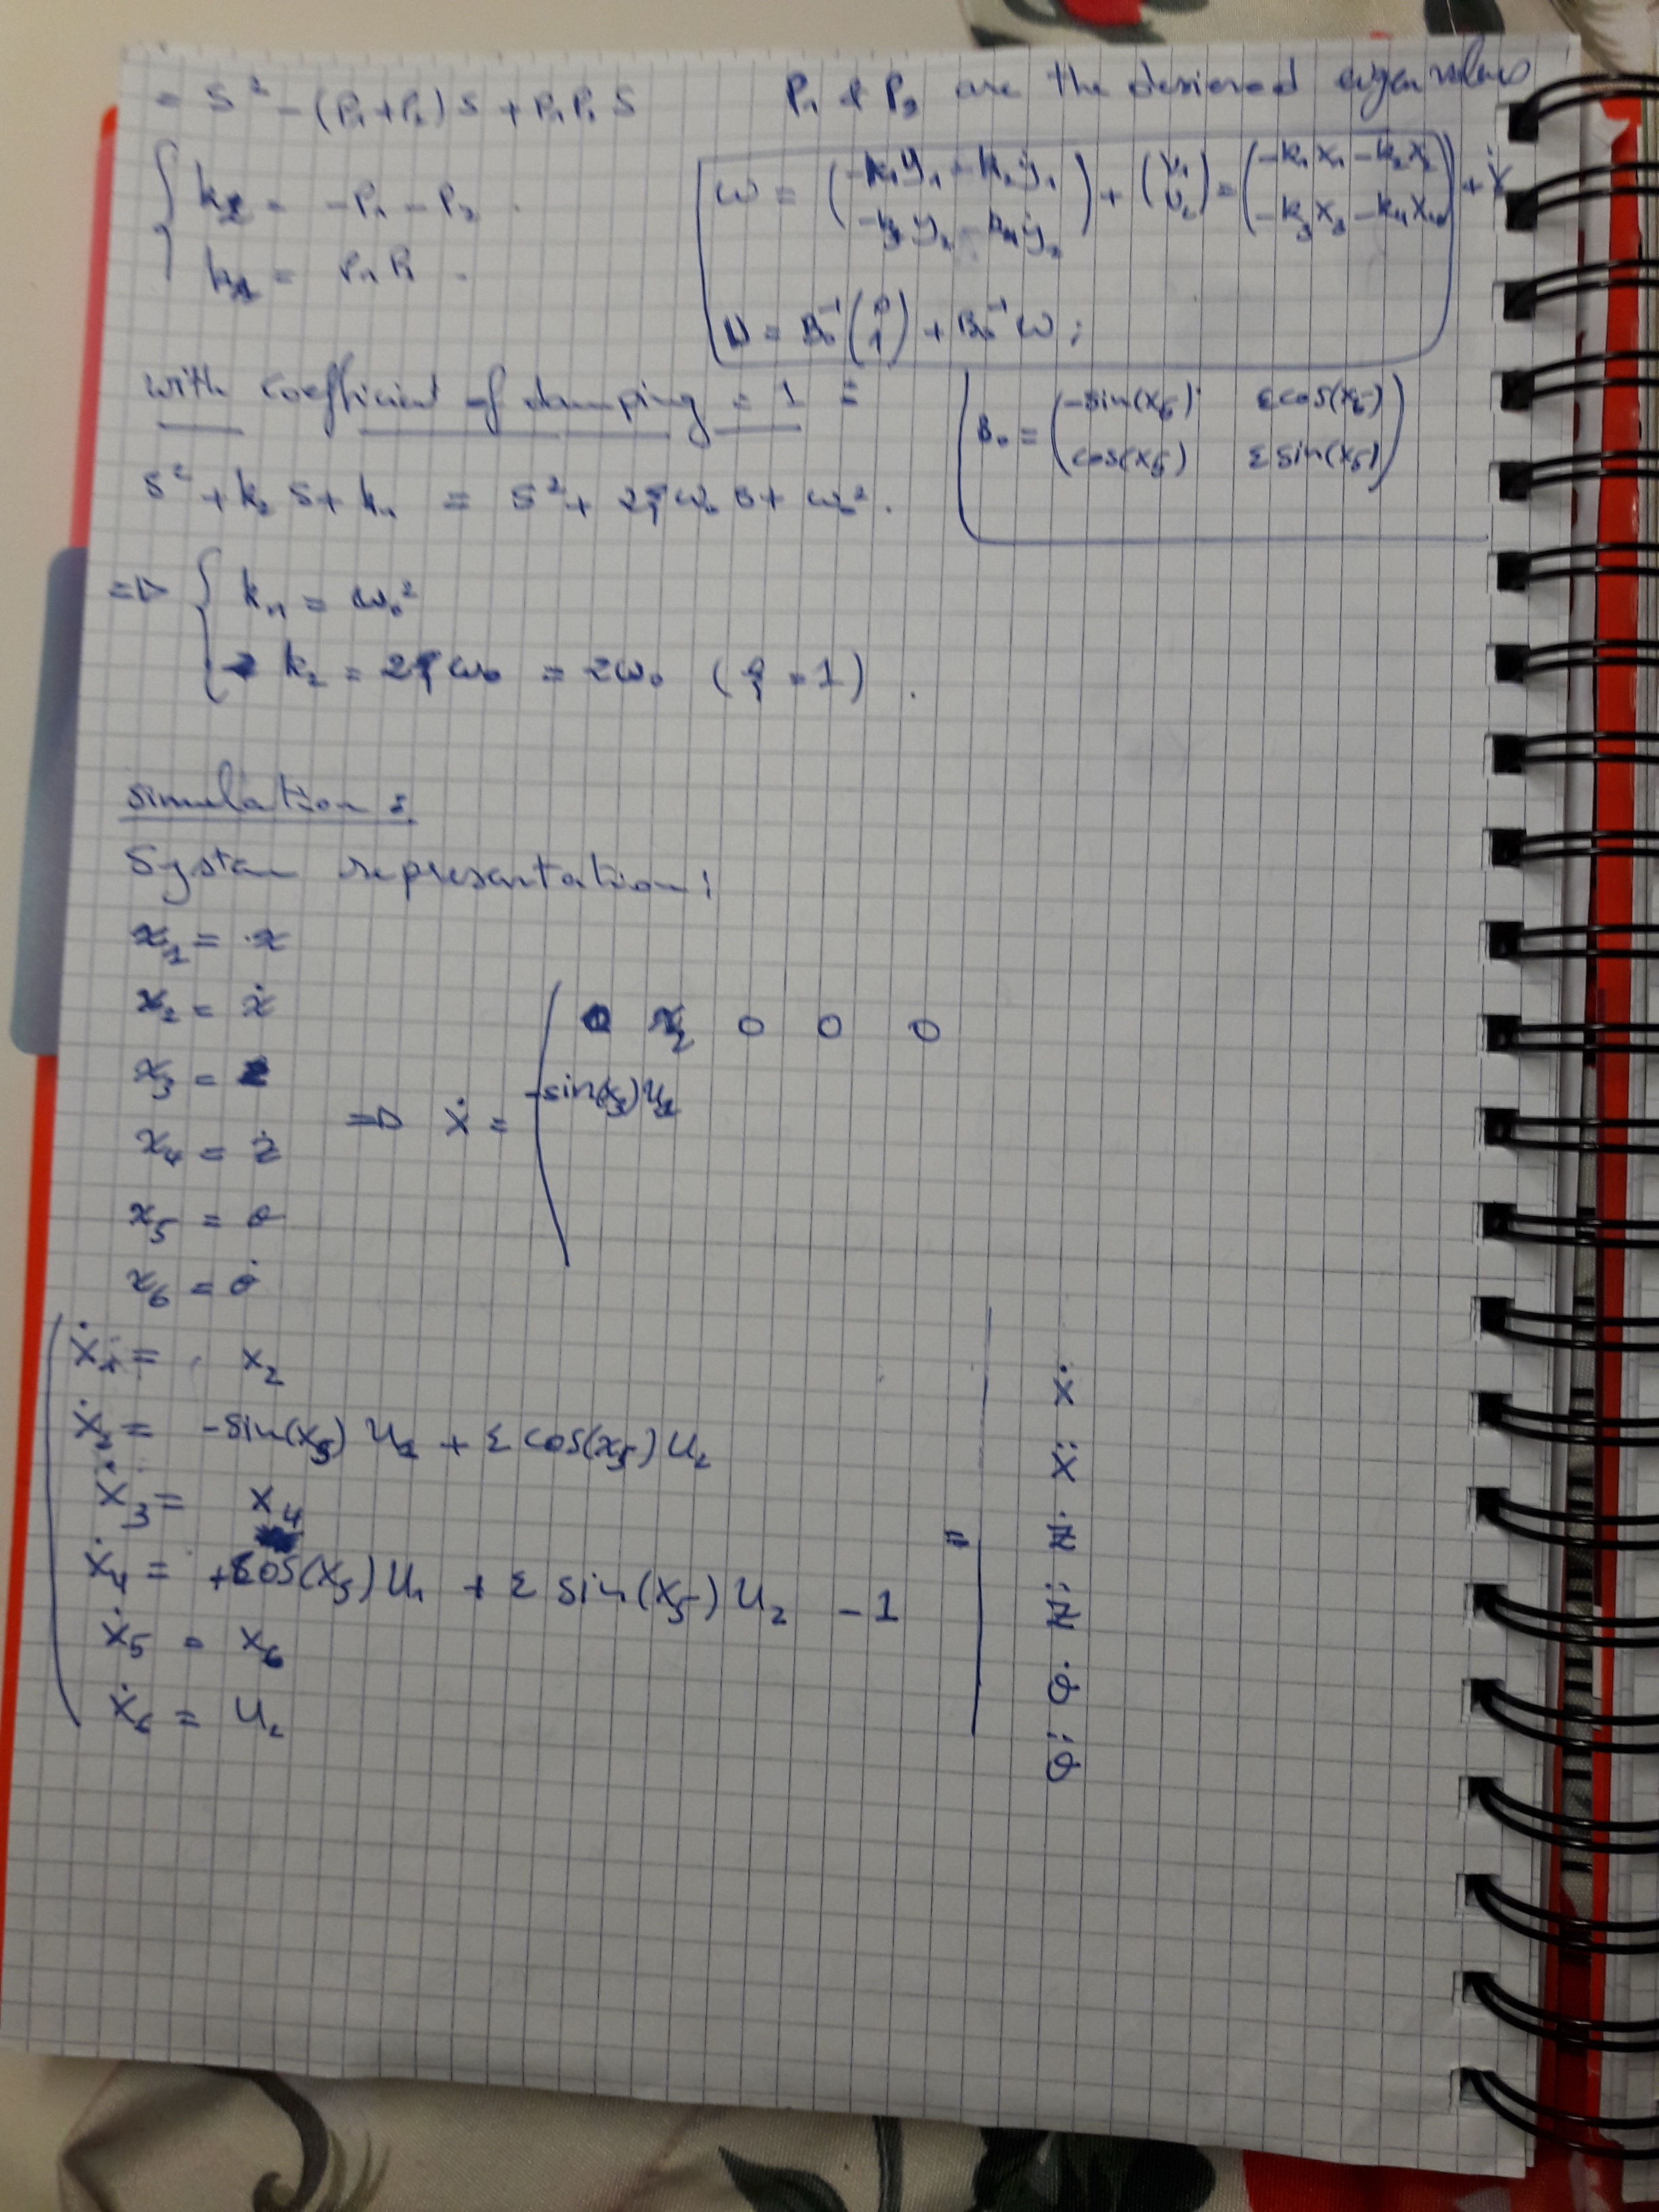 = s² - (P₁+P₂) s + P₁P₂ s      P₁ & P₂ are the desiered eigen values
{ k₂ = -P₁ - P₂ .
k₁ = P₁ P₂ .
ω = (-k₁y₁ - k₂ẏ₁ ; -k₃y₂ - k₄ẏ₂) + (v₁ ; v₂) = (-k₁x₁ - k₂x₂ ; -k₃x₃ - k₄x₄) + v
U = B₀⁻¹ (0 ; 1) + B₀⁻¹ ω ;
with coefficient of damping = 1 :
B₀ = (-sin(x₅)  εcos(x₅) ; cos(x₅)  εsin(x₅))
s² + k₂ s + k₁ = s² + 2ξω₀ s + ω₀² .
=> { k₁ = ω₀²
k₂ = 2ξω₀ = 2ω₀ (ξ = 1) .
simulation :
System representation :
x₁ = x
x₂ = ẋ
x₃ = z
x₄ = ż
x₅ = θ
x₆ = θ̇
=> Ẋ = ( 0 x₂ 0 0 0
-sin(x₅)u₁
ẋ₁ = x₂
ẋ₂ = -sin(x₅) u₁ + ε cos(x₅) u₂
ẋ₃ = x₄
ẋ₄ = +cos(x₅) u₁ + ε sin(x₅) u₂ - 1
ẋ₅ = x₆
ẋ₆ = u₂
= | ẋ
ẍ
ż
z̈
θ̇
θ̈